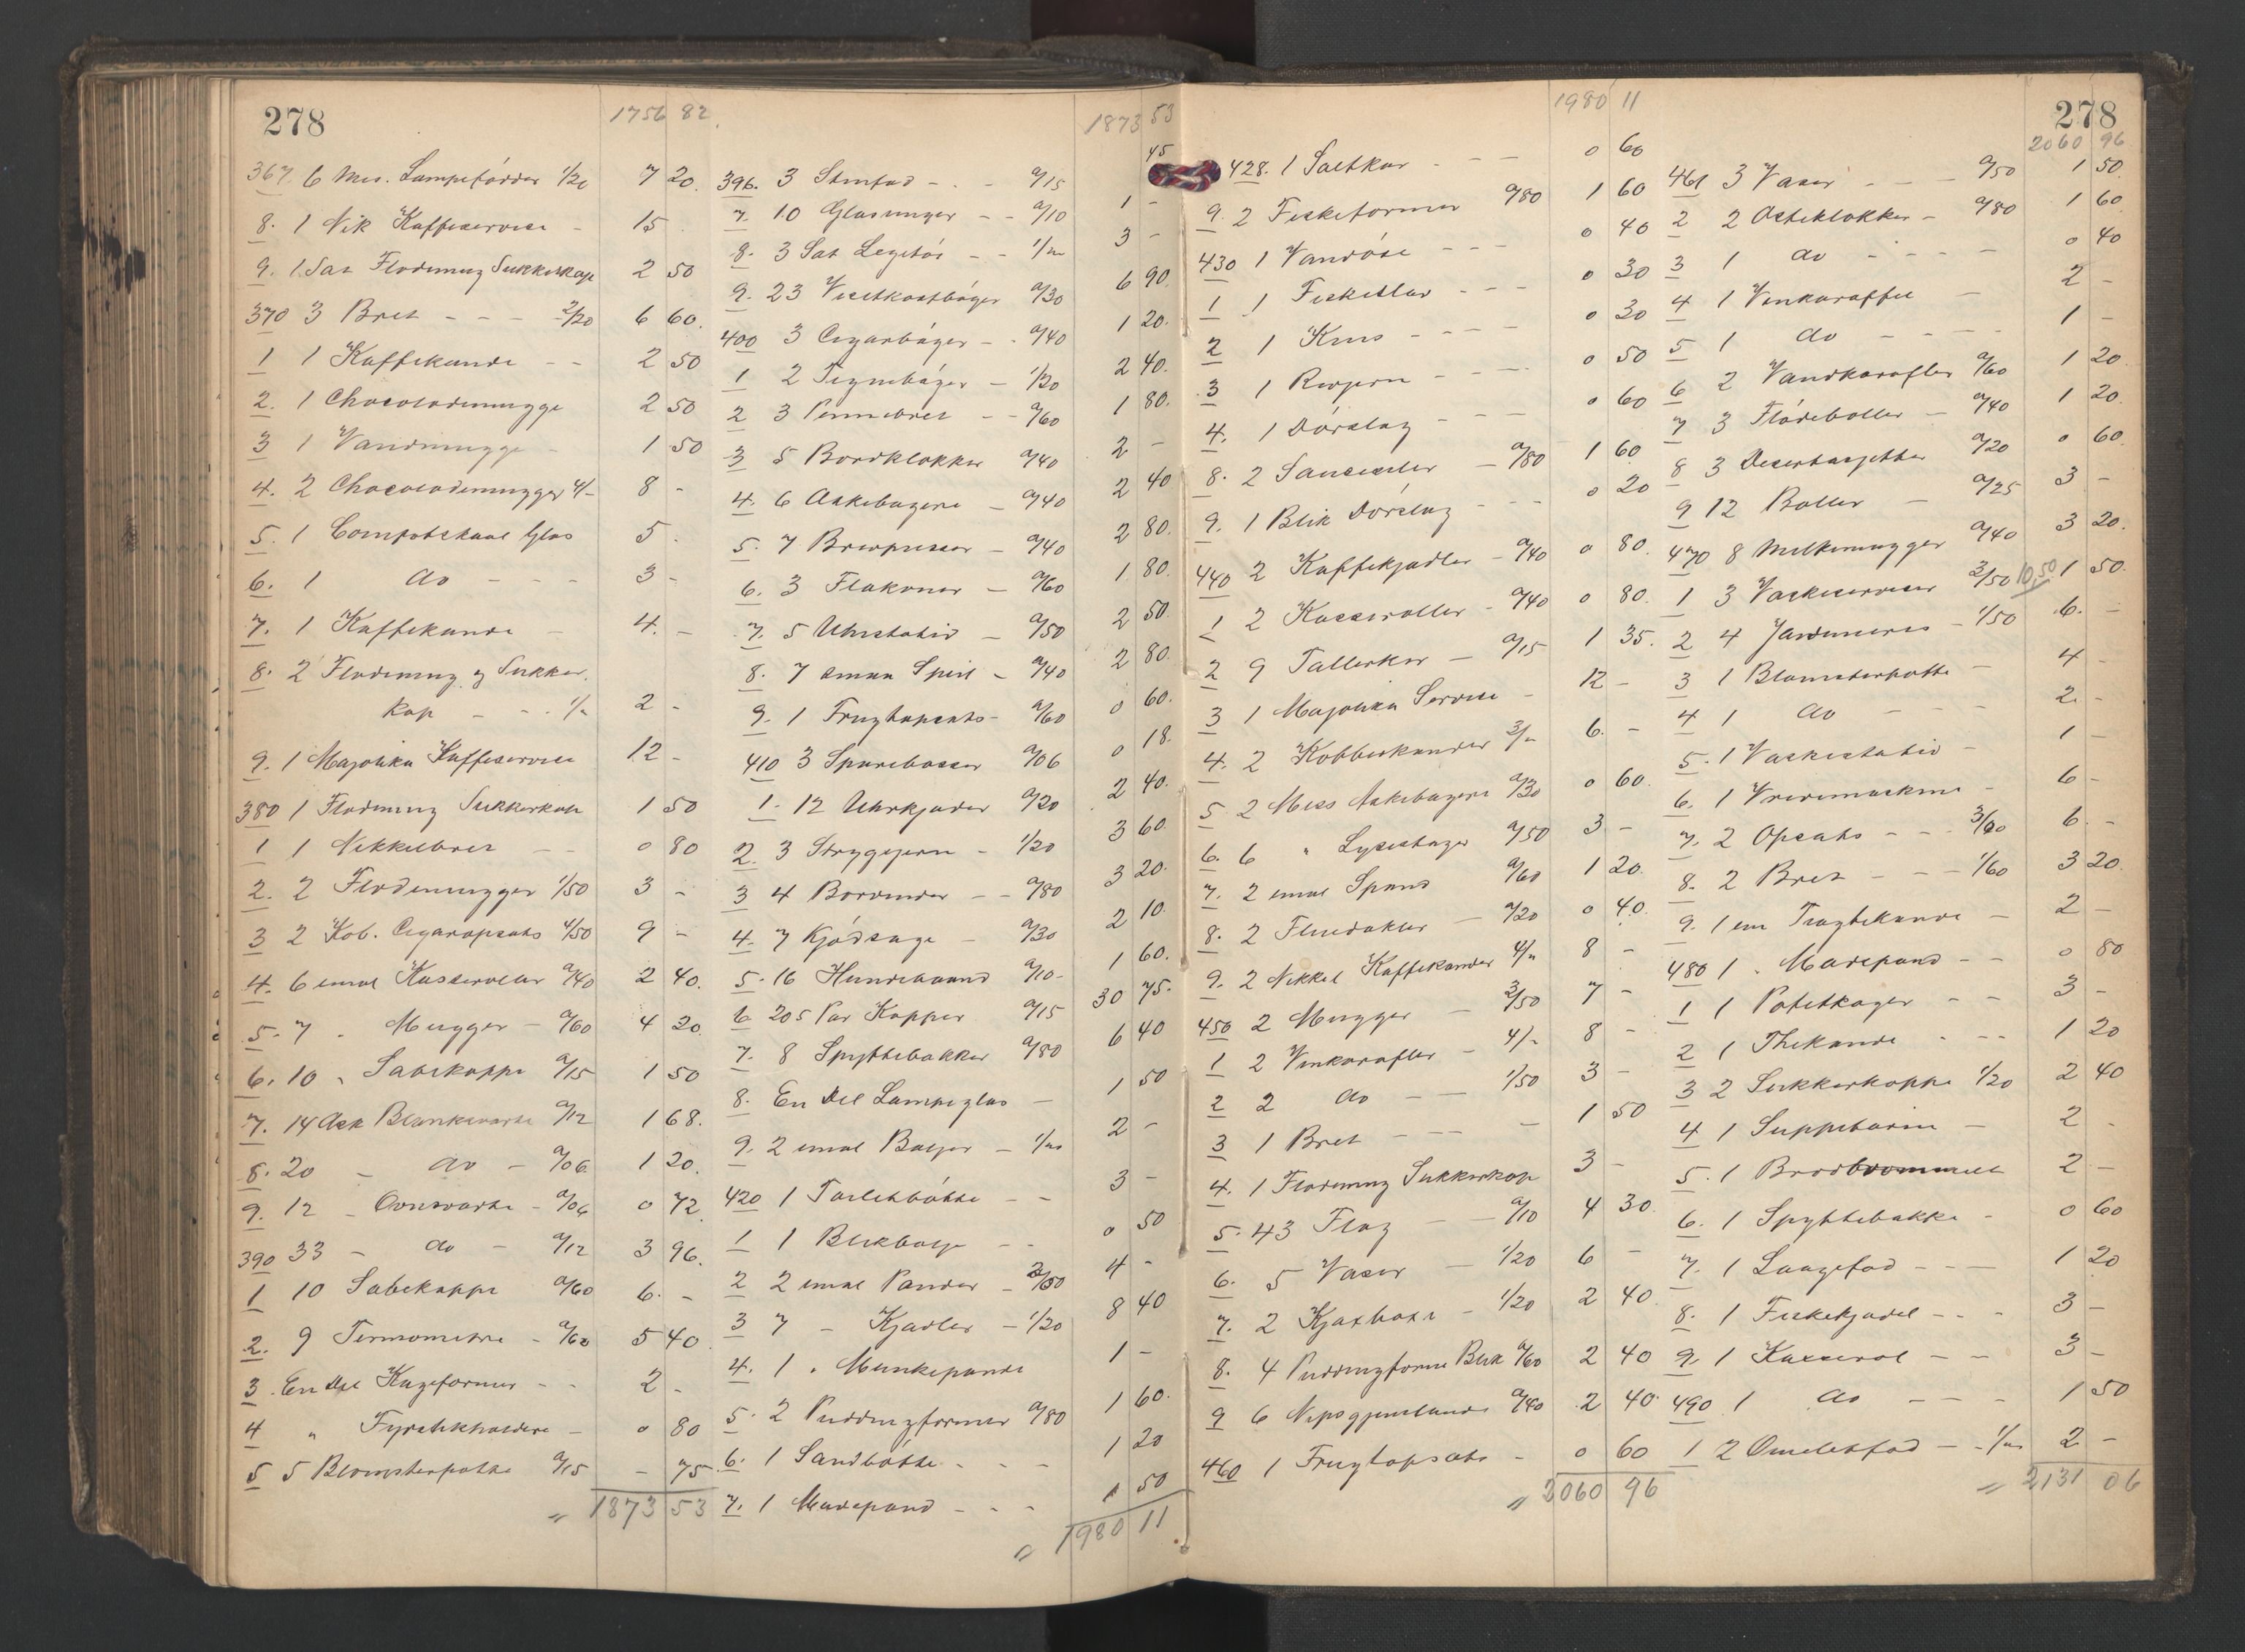 278
1756 82
367 6 Mes. Lampefødder 1/20 7 20
8. 1 Nik Kaffeservise - 15
9. 1 Sat Flødemug Sukkerkop 2 50
370 3 Bret - - - 2/20 6 60.
1 1 Kaffekande - - 2 50
2. 1 Chocolademugge 2 50
3 1 Vandmugge - 1 50
4. 2 Chocolademugger 4/- 8 -
5. 1 Compotskaal Glas 5 -
6. 1 do - - - 3 -
7. 1 Kaffekande - 4. -
8. 2 Flødemug og Sukker
kop - - - 1/- 2 -
9. 1 Majolika Kaffeservise 12 -
380 1 Flodemug Sukkerkop 1 50
1 1 Nikkelbret - - 0 80
2. 2 Flødemugger 1/50 3 -
3 2 Kob. Cigaropsats 4/50 9 -
4. 6 emal Kasseroller 0/40 2 40.
5. 7 " Mugger - 0/60 4 20
6. 10 " Sæbekoppe 0/15 1 50
7. 14 Æsk Blankeværte 0/12 1 68.
8. 20 - do - 0/06 1 20.
9. 12 - Ovnsværte - 0/06 0 72
390 33 - do - 0/12 3 96.
1 10 Sæbekoppe 0/60 6. -
2. 9 Termometre - 0/60 5 40
3. En Del Kageformer - - 2 -
4 " Fyrstikholdere - 0 80
5 5 Blomsterpotte 0/15 - 75
" 1873 53
1873 53
396. 3 Stenfad - - - 0/15 45
7. 10 Glasunger - - 0/10 1 -
8. 3 Sat Legetøi - - 1/- 3 -
9. 23 Visitkortbøger 0/30 6 90
400 3 Cigarbøger - - 0/40 1 20.
1 2 Tegnebøger - 1/20 2 40.
2 3 Pennebret - - 0/60 1 80.
3 5 Bordklokker 0/40 2 -
4. 6 Askebægere - 0/40 2 40
5. 7 Brevpresser - 0/40 2 80.
6. 3 Flakoner - 0/60 1 80.
7. 5 Uhrstativ - 0/50 2 50
8. 7 smaa Speil - 0/40 2 80.
9. 1 Frugtopsats - 0/60 0 60.
410 3 Sparebøsser 0/06 0 18.
1. 12 Uhrkjæder 0/20 2 40.
2. 3 Strygejern - 1/20 3 60
3 4 Borvinder - - 0/80 3 20.
4. 7 Kjødsage - 0/30 2 10.
5. 16 Hundebaand 0/10 - 1 60.
6. 205 Par Kopper 0/15 30 75.
7. 8 Spyttebakker 0/80 6 40
8. En Del Lampeglas - 1 50
9. 2 emal Baljer - 1/- 2 -
420 1 Toiletbøtte - - 3 -
1 1 Blikbalje - - 0 50
2 2 emal Pander - 2/00 4 -
3 7 - Kjædler - 1/20 8 40
4. 1 " Munkepande 1 -
5. 2 Puddingformer 0/80 1 60.
6. 1 Sandbøtte - - - 1 20
7. 1 Mærepand - - - 1 50
" 1980 11
1980 11
428. 1 Saltkar - - - 0 60
9. 2 Fiskeformer 0/80 1 60
430 1 Vandøse - - - 0 40
1 1 Fiskeslev - - - 0 30
2 1 Krus - - - - 0 30
3 1 Rivjern - - - - 0 50
4. 1 Dørslag - - - 0 60
8. 2 Sausesiler - 0/80 1 60
9. 1 Blik Dørslag - - - 0 20
440 2 Kaffekjædler - 0/40 0 80.
1 2 Kasseroller - 0/40 0 80.
2 9 Tallerker - 0/15 1 35.
3 1 Majolika Servise - 12 -
4. 2 Kobberkander 3/- 6. -
5 2 Mess Askebægere 0/30 0 60.
6. 6 " Lysestager 0/50 3 -
7. 2 emal Spand 0/60 1 20.
8. 2 Flueduker - 0/20 0 40.
9. 2 Nikkel Kaffekander 4/- 8 -
450 2 Mugger - 3/50 7 -
1 2 Vinkarafler - 4/- 8 -
2 2 do - - 1/50 3 -
3 1 Bret - - - - 1 50
4. 1 Flødemug Sukkerkop 3 -
5. 43 Flag - - 0/10 4 30.
6. 5 Vaser - 1/20 6 -
7. 2 Kjøxboxe - 1/20 2 40.
8. 4 Puddingforme Blik 0/60 2 40
9 6 Nipsgjenstande 0/40 2 40
460 1 Frugtopsats - 0 60
" 2060 96
278
2060 96
461 3 Vaser - - - 0/50 1 50.
2 2 Osteklokker - 0/80 1 60
3 1 do - - - - 0 40
4 1 Vinkaraffel - 2 -
5 1 do - - - - 1 -
6 2 Vandkarafler 0/60 1 20
7 3 Flødeboller - 0/40 1 20.
8 3 Desertasjetter 0/20 0 60.
9 12 Boller - 0/25 3 -
470 8 Melkemugger 0/40 3 20.
1 3 Vaskeserviser 3/50 10,50 1 50.
2 4 Jardineres - 1/50 6. -
3 1 Blomsterpotte - 4 -
4 1 do - - - 2. -
5. 1 Vaskestativ - 1 -
6. 1 Vridemaskine - 6 -
7. 2 Opsats - - - 3/00 6. -
8. 2 Bret - - - 1/60 3 20.
9. 1 em Tragtekande - 2 -
480 1 " Mærepand - - 0 80
1 1 Potetkoger - - 3 -
2 1 Thekande - - - 1 20
3 2 Sukkerkoppe 1/20 2 40
4 1 Suppeterin - 2 -
5. 1 Brødtrommel 2 -
6. 1 Spyttebakke - 0 60
7. 1 Laagefad - - - 1 20
8. 1 Fiskekjædel - - - 3 -
9. 1 Kasserol - - 3 -
490 1 do - - - 1 50
1 2 Omeletfad - - 1/- 2 -
" 2131 06